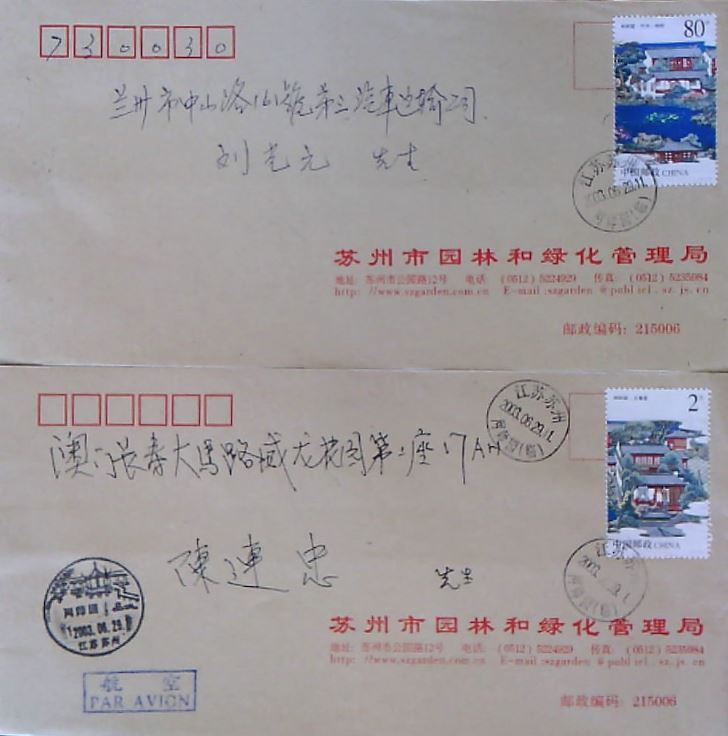 730030
80分
兰州市中山路161号第三汽车运输公司
刘光元 先生
中国邮政 CHINA
江苏苏州
2003.06.29.11
苏州市园林和绿化管理局
地址: 苏州市公园路12号 电话: (0512) 5224929 传真: (0512) 5235984
http: //www.szgarden.com.cn E-mail:szgarden @publicl.sz.js.cn
邮政编码: 215006
江苏苏州
2003.06.29.1
网师园(临)
2元
澳门长寿大马路威龙花园第二座17AH
陳連忠 先生
中国邮政 CHINA
江苏苏
网师园
2003.06.29
江苏苏州
苏州市园林和绿化管理局
地址: 苏州市公园路12号 电话: (0512) 5224929 传真: (0512) 5235984
http: //www.szgarden.com.cn E-mail:szgarden @publicl.sz.js.cn
航空
PAR AVION
邮政编码: 215006